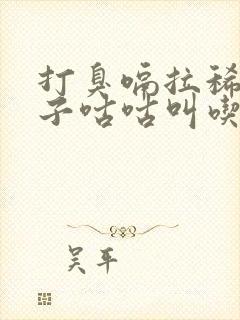 打臭嗝拉稀
子咕咕叫喫
吴平